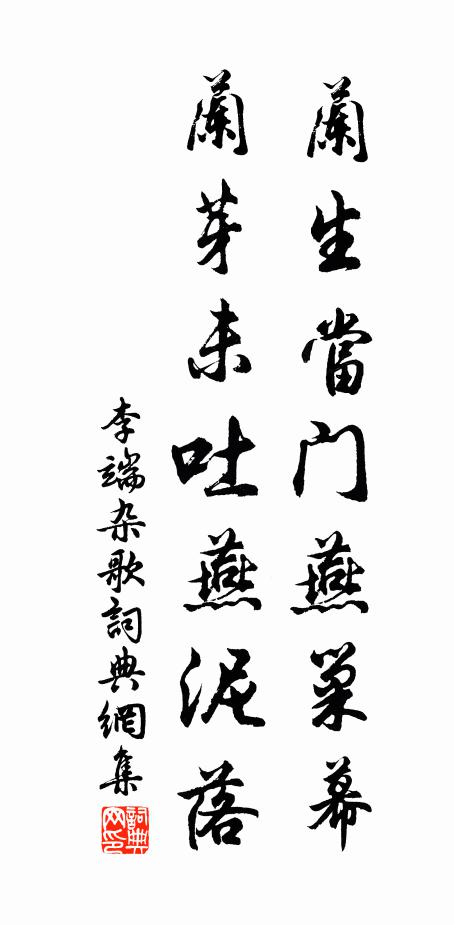 蘭生當门燕巢幕
蘭芽未吐燕泥落
李端杂歌詞典網集
詞典网印